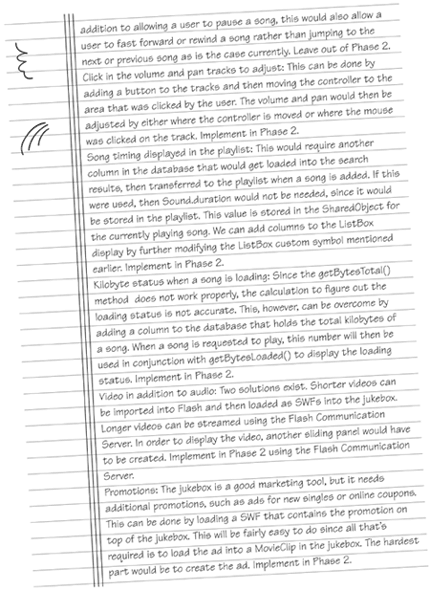 addition to allowing a user to pause a song, this would also allow a
user to fast forward or rewind a song rather than jumping to the
next or previous song as is the case currently. Leave out of Phase 2.
Click in the volume and pan tracks to adjust: This can be done by
adding a button to the tracks and then moving the controller to the
area that was clicked by the user. The volume and pan would then be
adjusted by either where the controller is moved or where the mouse
was clicked on the track. Implement in Phase 2.
Song timing displayed in the playlist: This would require another
column in the database that would get loaded into the search
results, then transferred to the playlist when a song is added. If this
were used, then Sound.duration would not be needed, since it would
be stored in the playlist. This value is stored in the SharedObject for
the currently playing song. We can add columns to the ListBox
display by further modifying the ListBox custom symbol mentioned
earlier. Implement in Phase 2.
Kilobyte status when a song is loading: Since the getBytesTotal()
method does not work properly, the calculation to figure out the
loading status is not accurate. This, however, can be overcome by
adding a column to the database that holds the total kilobytes of
a song. When a song is requested to play, this number will then be
used in conjunction with getBytesLoaded() to display the loading
status. Implement in Phase 2.
Video in addition to audio: Two solutions exist. Shorter videos can
be imported into Flash and then loaded as SWFs into the jukebox.
Longer videos can be streamed using the Flash Communication
Server. In order to display the video, another sliding panel would have
to be created. Implement in Phase 2 using the Flash Communication
Server.
Promotions: The jukebox is a good marketing tool, but it needs
additional promotions, such as ads for new singles or online coupons.
This can be done by loading a SWF that contains the promotion on
top of the jukebox. This will be fairly easy to do since all that's
required is to load the ad into a MovieClip in the jukebox. The hardest
part would be to create the ad. Implement in Phase 2.